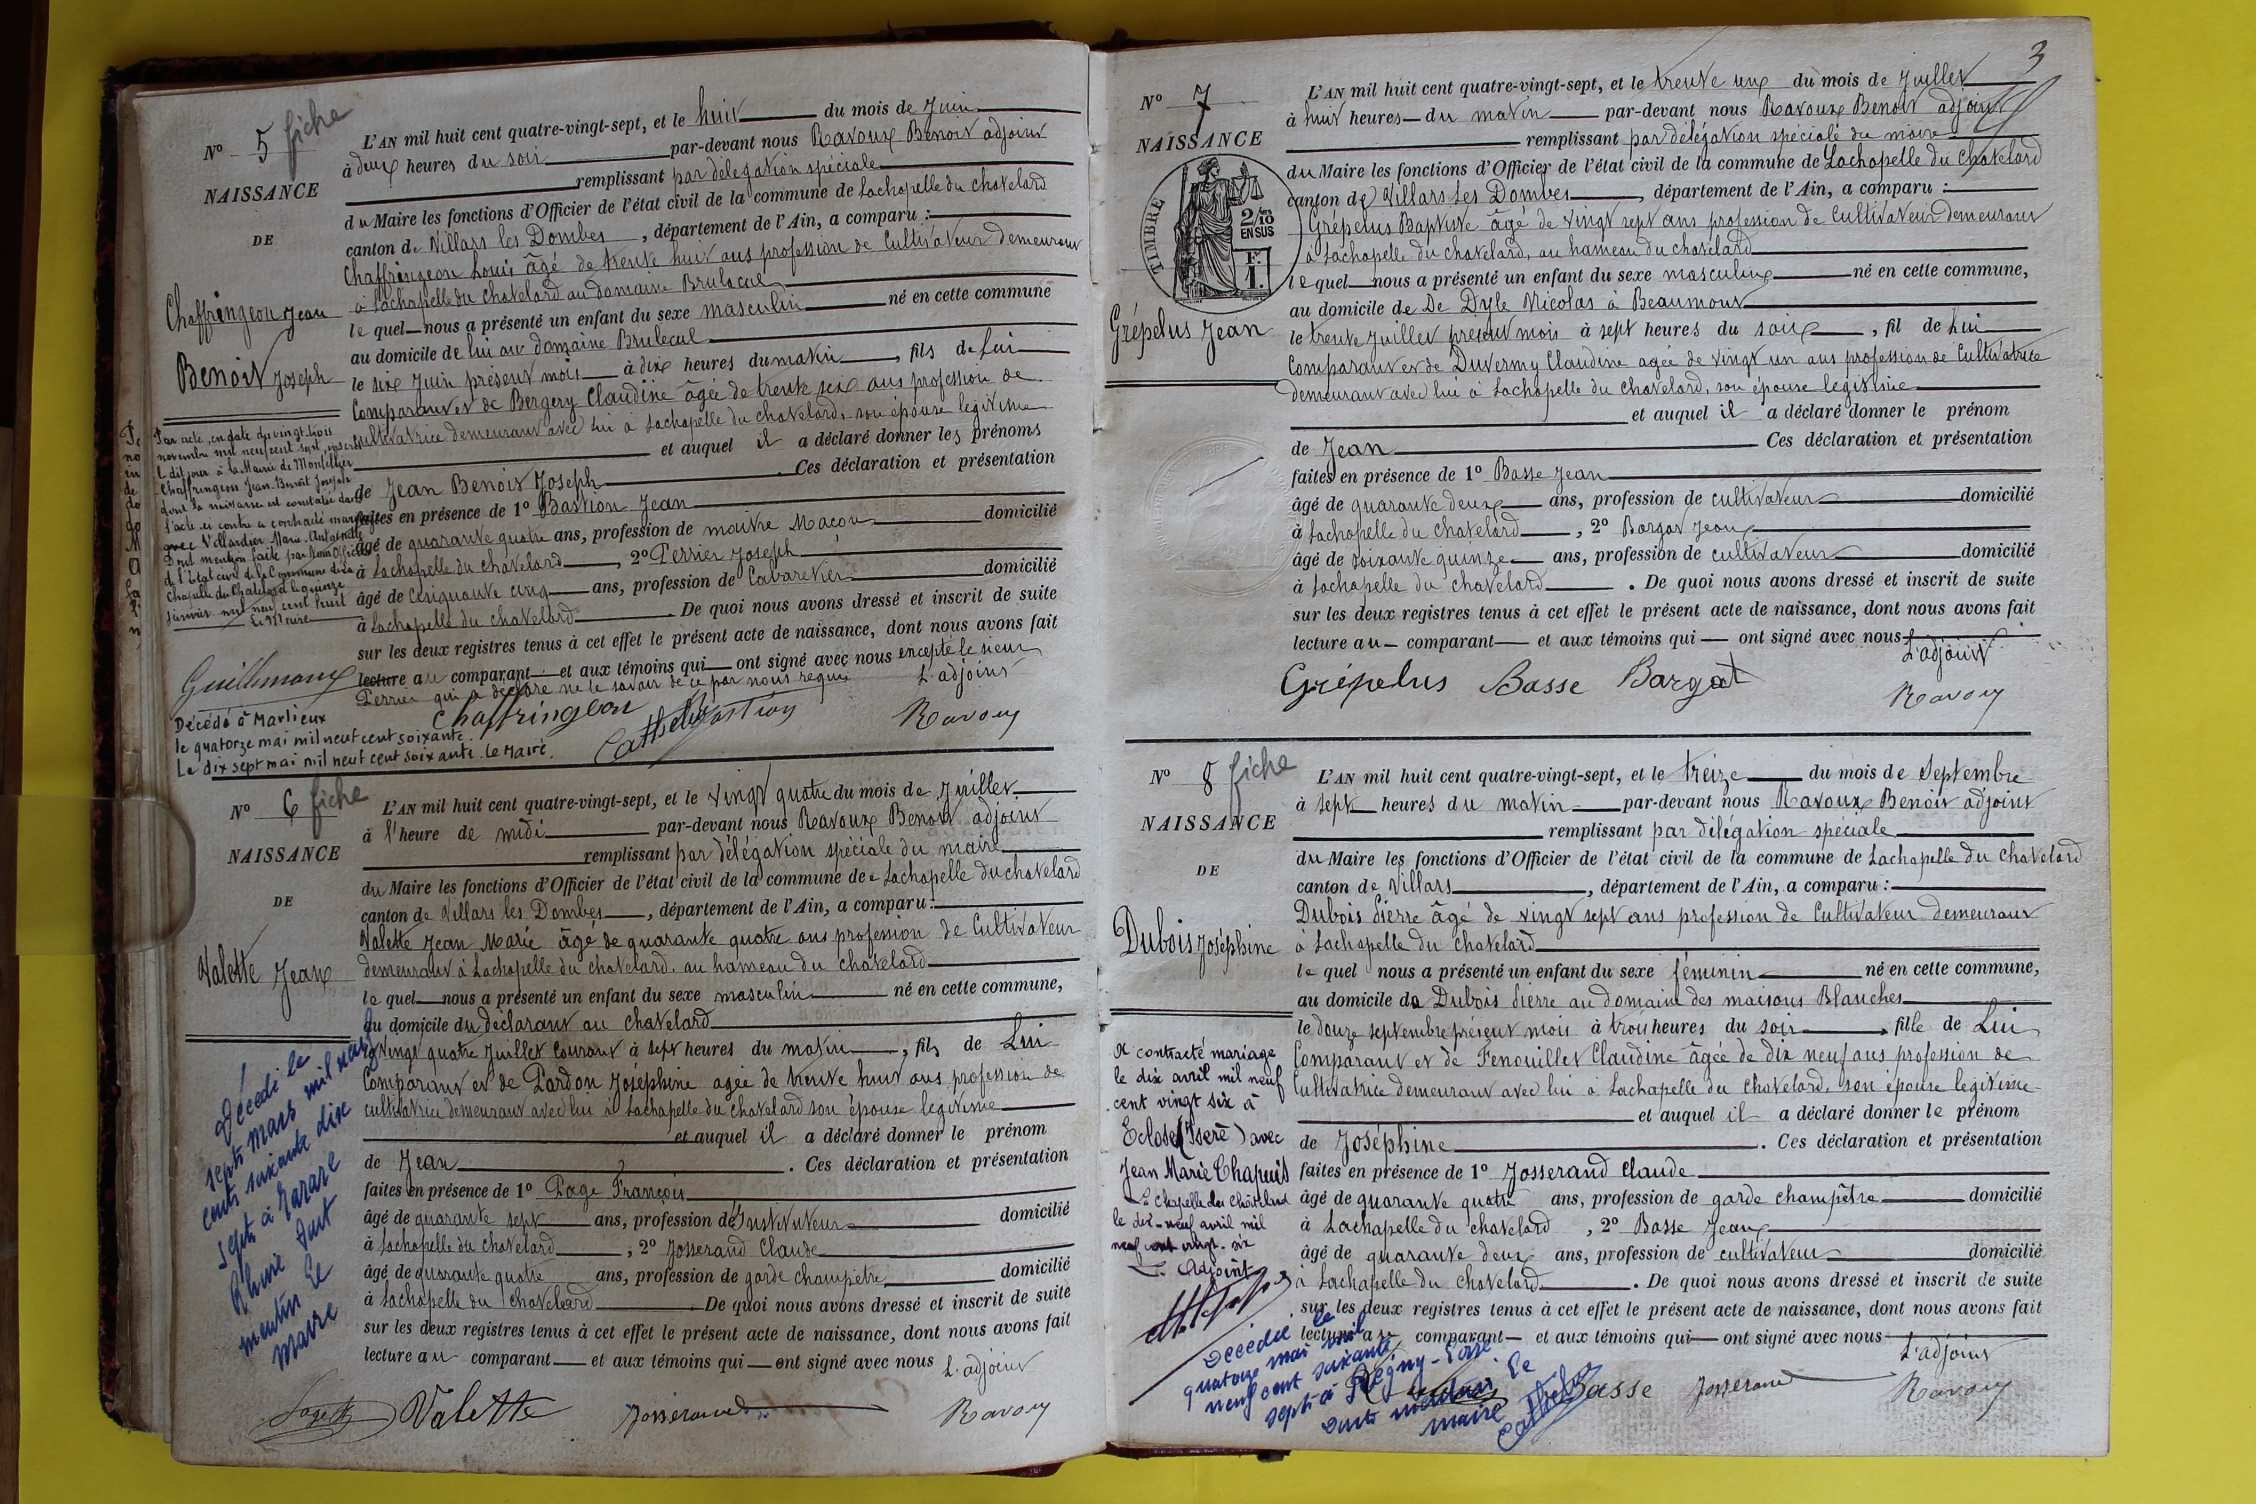 Nº 5 fiche
NAISSANCE
DE
Chaffringeon Jean
Benoit Joseph
L'AN mil huit cent quatre-vingt-sept, et le huit du mois de Juin
à deux heures du soir par-devant nous Ravoux Benoit adjoint
remplissant par délégation spéciale
du Maire les fonctions d'Officier de l'état civil de la commune de Lachapelle du chatelard
canton de Villars les Dombes, département de l'Ain, a comparu :
Chaffringeon Louis âgé de trente huit ans profession de Cultivateur demeurant
à Lachapelle du chatelard au domaine Brulecul
le quel nous a présenté un enfant du sexe masculin né en cette commune
au domicile de lui au domaine Brulecul
le six Juin présent mois à dix heures du matin, fils de Lui
Comparant et de Bergery Claudine âgée de trente six ans profession de
cultivatrice demeurant avec lui à Lachapelle du chatelard, son épouse legitime
et auquel il a déclaré donner les prénoms
de Jean Benoit Joseph Ces déclaration et présentation
faites en présence de 1º Bastion Jean
âgé de quarante quatre ans, profession de maitre Maçon domicilié
à Lachapelle du chatelard, 2º Perrier Joseph
âgé de cinquante cinq ans, profession de Cabaretier domicilié
à Lachapelle du chatelard De quoi nous avons dressé et inscrit de suite
sur les deux registres tenus à cet effet le présent acte de naissance, dont nous avons fait
lecture au comparant et aux témoins qui ont signé avec nous excepté le sieur
Perrier qui a déclaré ne le savoir de ce par nous requis
L'adjoint
Chaffringeon Bastion Ravoux
Par acte, en date du vingt-trois
novembre mil neuf cent sept, inscrit
le dit jour à la Mairie de Montellier
Chaffringeon Jean Benoit Joseph
dont la naissance est constatée dans
l'acte ci contre a contracté mariage
avec Villardier Marie-Antoinette
Dont mention faite par Nous Officier
de l'Etat civil de la Commune de la
Chapelle du Chatelard le quinze
Janvier mil neuf cent huit
Le Maire
Guillemaux
Décédé à Marlieux
le quatorze mai mil neuf cent soixante.
Le dix sept mai mil neuf cent soixante. Le Maire.
Cathelin
Nº 6 fiche
NAISSANCE
DE
Valette Jean
L'AN mil huit cent quatre-vingt-sept, et le vingt quatre du mois de Juillet
à l'heure de midi par-devant nous Ravoux Benoit adjoint
remplissant par délégation spéciale du maire
du Maire les fonctions d'Officier de l'état civil de la commune de Lachapelle du chatelard
canton de Villars les Dombes, département de l'Ain, a comparu :
Valette Jean Marie âgé de quarante quatre ans profession de Cultivateur
demeurant à Lachapelle du chatelard, au hameau du chatelard
le quel nous a présenté un enfant du sexe masculin né en cette commune,
au domicile du déclarant au chatelard
le vingt quatre Juillet courant à sept heures du matin, fils de Lui
Comparant et de Pardon Joséphine agée de trente huit ans profession de
cultivatrice demeurant avec lui à Lachapelle du chatelard son épouse legitime
et auquel il a déclaré donner le prénom
de Jean. Ces déclaration et présentation
faites en présence de 1º Page François
âgé de quarante sept ans, profession d'Instituteur domicilié
à Lachapelle du chatelard, 2º Josserand Claude
âgé de quarante quatre ans, profession de garde champêtre domicilié
à Lachapelle du chatelard. De quoi nous avons dressé et inscrit de suite
sur les deux registres tenus à cet effet le présent acte de naissance, dont nous avons fait
lecture au comparant et aux témoins qui ont signé avec nous L'adjoint
Page Valette Josserand Ravoux
Décédé le
sept mars mil neuf
cent soixante dix
sept à Tarare
Rhône Dont
mention Le
Maire
3
Nº 7
NAISSANCE
TIMBRE
2/10 EN SUS
F. 1.
Grépelus Jean
L'AN mil huit cent quatre-vingt-sept, et le trente un du mois de Juillet
à huit heures du matin par-devant nous Ravoux Benoit adjoint
remplissant par délégation spéciale du maire
du Maire les fonctions d'Officier de l'état civil de la commune de Lachapelle du chatelard
canton de Villars les Dombes, département de l'Ain, a comparu :
Grépelus Baptiste âgé de vingt sept ans profession de Cultivateur demeurant
à Lachapelle du chatelard, au hameau du chatelard
le quel nous a présenté un enfant du sexe masculin né en cette commune,
au domicile de De Dyle Nicolas à Beaumont
le trente Juillet présent mois à sept heures du soir, fil de Lui
Comparant et de Duvermy Claudine agée de vingt un ans profession de Cultivatrice
demeurant avec lui à Lachapelle du chatelard, son épouse legitime
et auquel il a déclaré donner le prénom
de Jean Ces déclaration et présentation
faites en présence de 1º Basse Jean
âgé de quarante deux ans, profession de cultivateur domicilié
à Lachapelle du chatelard, 2º Bargat Jean
âgé de soixante quinze ans, profession de cultivateur domicilié
à Lachapelle du chatelard. De quoi nous avons dressé et inscrit de suite
sur les deux registres tenus à cet effet le présent acte de naissance, dont nous avons fait
lecture au comparant et aux témoins qui ont signé avec nous
L'adjoint
Grépelus Basse Bargat Ravoux
Nº 8 fiche
NAISSANCE
DE
Dubois Joséphine
L'AN mil huit cent quatre-vingt-sept, et le treize du mois de Septembre
à sept heures du matin par-devant nous Ravoux Benoit adjoint
remplissant par délégation spéciale
du Maire les fonctions d'Officier de l'état civil de la commune de Lachapelle du chatelard
canton de Villars, département de l'Ain, a comparu :
Dubois Pierre âgé de vingt sept ans profession de Cultivateur demeurant
à Lachapelle du chatelard
le quel nous a présenté un enfant du sexe féminin né en cette commune,
au domicile de Dubois Pierre au domaine des maisons Blanches
le douze septembre présent mois à trois heures du soir, fille de Lui
Comparant et de Fenouillet Claudine âgée de dix neuf ans profession de
Cultivatrice demeurant avec lui à Lachapelle du chatelard, son épouse legitime
et auquel il a déclaré donner le prénom
de Joséphine. Ces déclaration et présentation
faites en présence de 1º Josserand Claude
âgé de quarante quatre ans, profession de garde champêtre domicilié
à Lachapelle du chatelard, 2º Basse Jean
âgé de quarante deux ans, profession de cultivateur domicilié
à Lachapelle du chatelard. De quoi nous avons dressé et inscrit de suite
sur les deux registres tenus à cet effet le présent acte de naissance, dont nous avons fait
lecture au comparant et aux témoins qui ont signé avec nous
L'adjoint
Basse Josserand Ravoux
A contracté mariage
le dix avril mil neuf
cent vingt six à
Eclose (Isère) avec
Jean Marie Chapuis
La Chapelle du Châtelard
le dix-neuf avril mil
neuf cent vingt-six
L'Adjoint
Décédée le
quatorze mai mil
neuf cent soixante
sept à Régny-Loire
Dont mention. Le
Maire
Cathelin